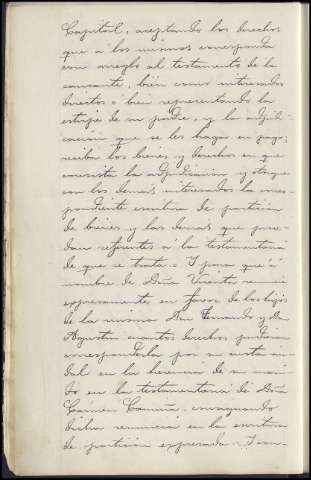 Capital, aceptando los derechos
que á los mismos corresponda
con arreglo al testamento de la
causante, bien como interesados
directos ó bien representando la
estirpe de su padre, y la adjudi-
cacion que se les haga en pago;
reciba los bienes y derechos en que
consista la adjudicacion y otorgue
con los demas interesados la corres-
pondiente escritura de particion
de bienes y las demas que pue-
dan referentes á la testamentaria
de que se trata = Y para que á
nombre de Doña Vicenta renuncie
expresamente en favor de los hijos
de la misma Don Fernando y Don
Agustin cuantos derechos pudieran
corresponderla por su cuota viu-
dal en la herencia de su mari-
do en la testamentaria de Doña
Carmen consignando
dicha renuncia en la escritura
de particion expresada = Y con-